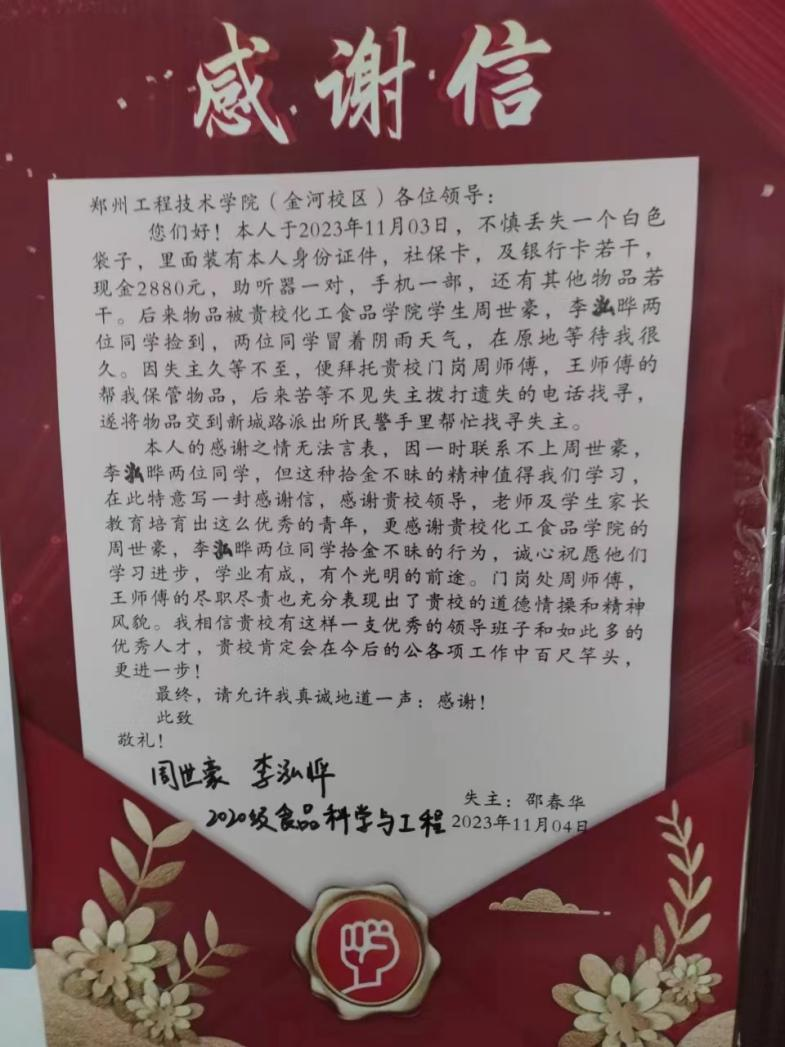 感谢信
郑州工程技术学院（金河校区）各位领导：
您们好！本人于2023年11月03日，不慎丢失一个白色
袋子，里面装有本人身份证件，社保卡，及银行卡若干，
现金2880元，助听器一对，手机一部，还有其他物品若
干。后来物品被贵校化工食品学院学生周世豪，李泓晔两
位同学捡到，两位同学冒着阴雨天气，在原地等待我很
久。因失主久等不至，便拜托贵校门岗周师傅，王师傅的
帮我保管物品，后来苦等不见失主拨打遗失的电话找寻，
遂将物品交到新城路派出所民警手里帮忙找寻失主。
本人的感谢之情无法言表，因一时联系不上周世豪，
李泓晔两位同学，但这种拾金不昧的精神值得我们学习，
在此特意写一封感谢信，感谢贵校领导，老师及学生家长
教育培育出这么优秀的青年，更感谢贵校化工食品学院的
周世豪，李泓晔两位同学拾金不昧的行为，诚心祝愿他们
学习进步，学业有成，有个光明的前途。门岗处周师傅，
王师傅的尽职尽责也充分表现出了贵校的道德情操和精神
风貌。我相信贵校有这样一支优秀的领导班子和如此多的
优秀人才，贵校肯定会在今后的公各项工作中百尺竿头，
更进一步！
最终，请允许我真诚地道一声：感谢！
此致
敬礼！
周世豪 李泓晔
失主：邵春华
2020级食品科学与工程 2023年11月04日